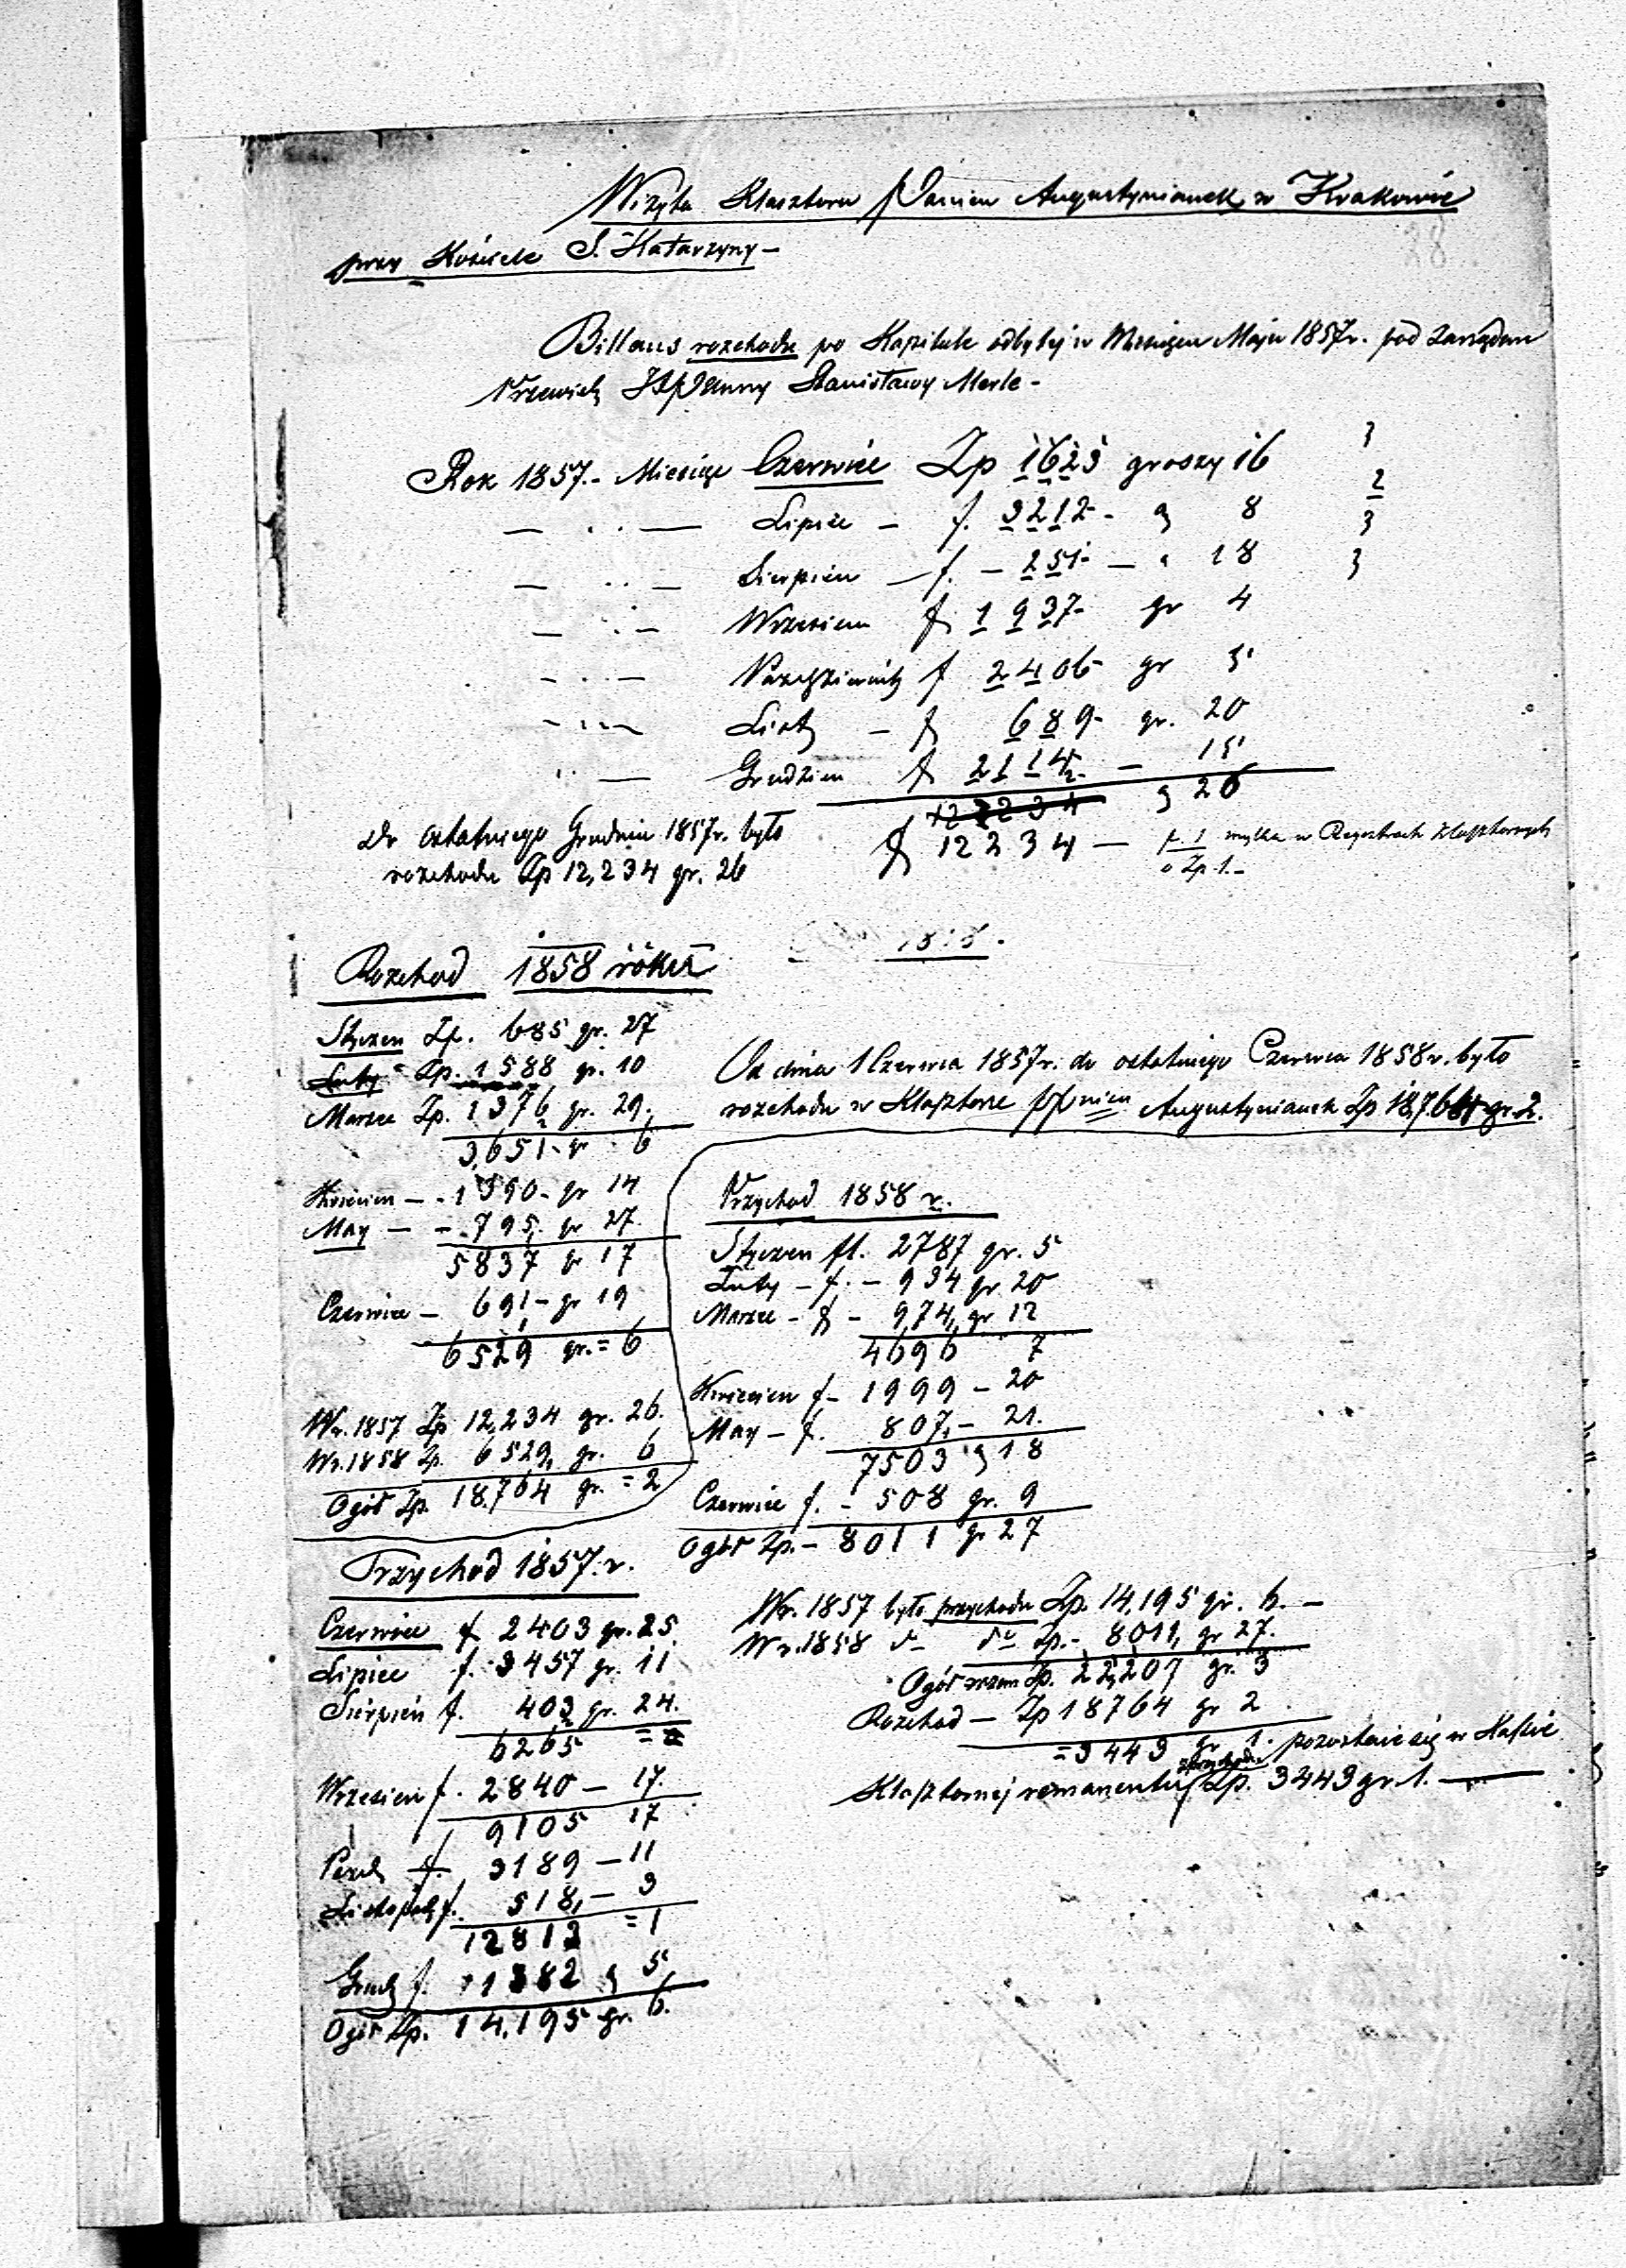 Wizyta Klasztoru Panien Augustynianek w Krakowie
przy Kościele S. Katarzyny —
Billans rozchodu po Kapitule odbytej w Miesiącu Maju 1857 r. pod zarządem
Stanisławy Merle -
Rok 1857. - Miesiąc Czerwiec Zp 1623 groszy 16
Lipiec - f. 3212 - 8
Sierpien - f. - 251 - 18
Wrzesien f 1937 - gr 4
Pazdziernik f 2406 - gr 5
List - f 689 - gr. 20
Grudzien f 2114 - 15
12234 26
Do ostatniego Grudnia 1857 r. było
f 12234 — f. 1 myłka w Regestrach klasztornych
o Zp 1. -
rozchodu Zp 12,234 gr. 26
Rozchod 1858 roku
Styczen Zp. 685 gr. 27
Luty - Zp. 1588 gr. 10
Marzec Zp. 1376 gr. 29.
3,651 - gr - 6
Kwiecien — - 1390 - gr 14
May — - 795. gr 27.
5837 gr 17
Czerwiec — 691 - gr 19
6529 gr. = 6
W r. 1857 Zp 12,234 gr. 26.
W r. 1858 Zp. 6529, gr. 6
Ogół Zp. 18,764 gr. = 2
Od dnia 1 Czerwca 1857 r. do ostatniego Czerwca 1858 r. było
rozchodu w Klasztorze Augustynianek Zp 18,764 gr. 2.
Przychod 1858 r.
Styczen fl. 2787 gr. 5
Luty - f. - 934 gr 20
Marzec - f - 974, gr 12
4696 7
Kwiecien f - 1999 - 20
May - f. 807, - 21.
7503 18
Czerwiec f. - 508 gr. 9
Ogół Zp. - 8011 gr 27
Przychod 1857. r.
Czerwiec f 2403 gr. 25.
Lipiec f. 3457 gr. 11
Sierpień f. 403 gr. 24.
6265 =
Wrzesien f. 2840 — 17.
9105 17
Pazd f. 3189 — 11
Listopad f. 518, — 3
12813 = 1
Grud f. 1382 5,
Ogół Zp. 14,195 gr. 6.
W r. 1857 było przychodu Zp. 14,195 gr. 6. —
W r. 1858 do do Zp. - 8011, gr 27.
Ogół razem Zp. 22,207 gr. 3
Rozchod — Zp 18764 gr 2
= 3443 gr 1. pozostaie się w Kassie
Klasztornej remanentu Zp. 3443 gr. 1. —